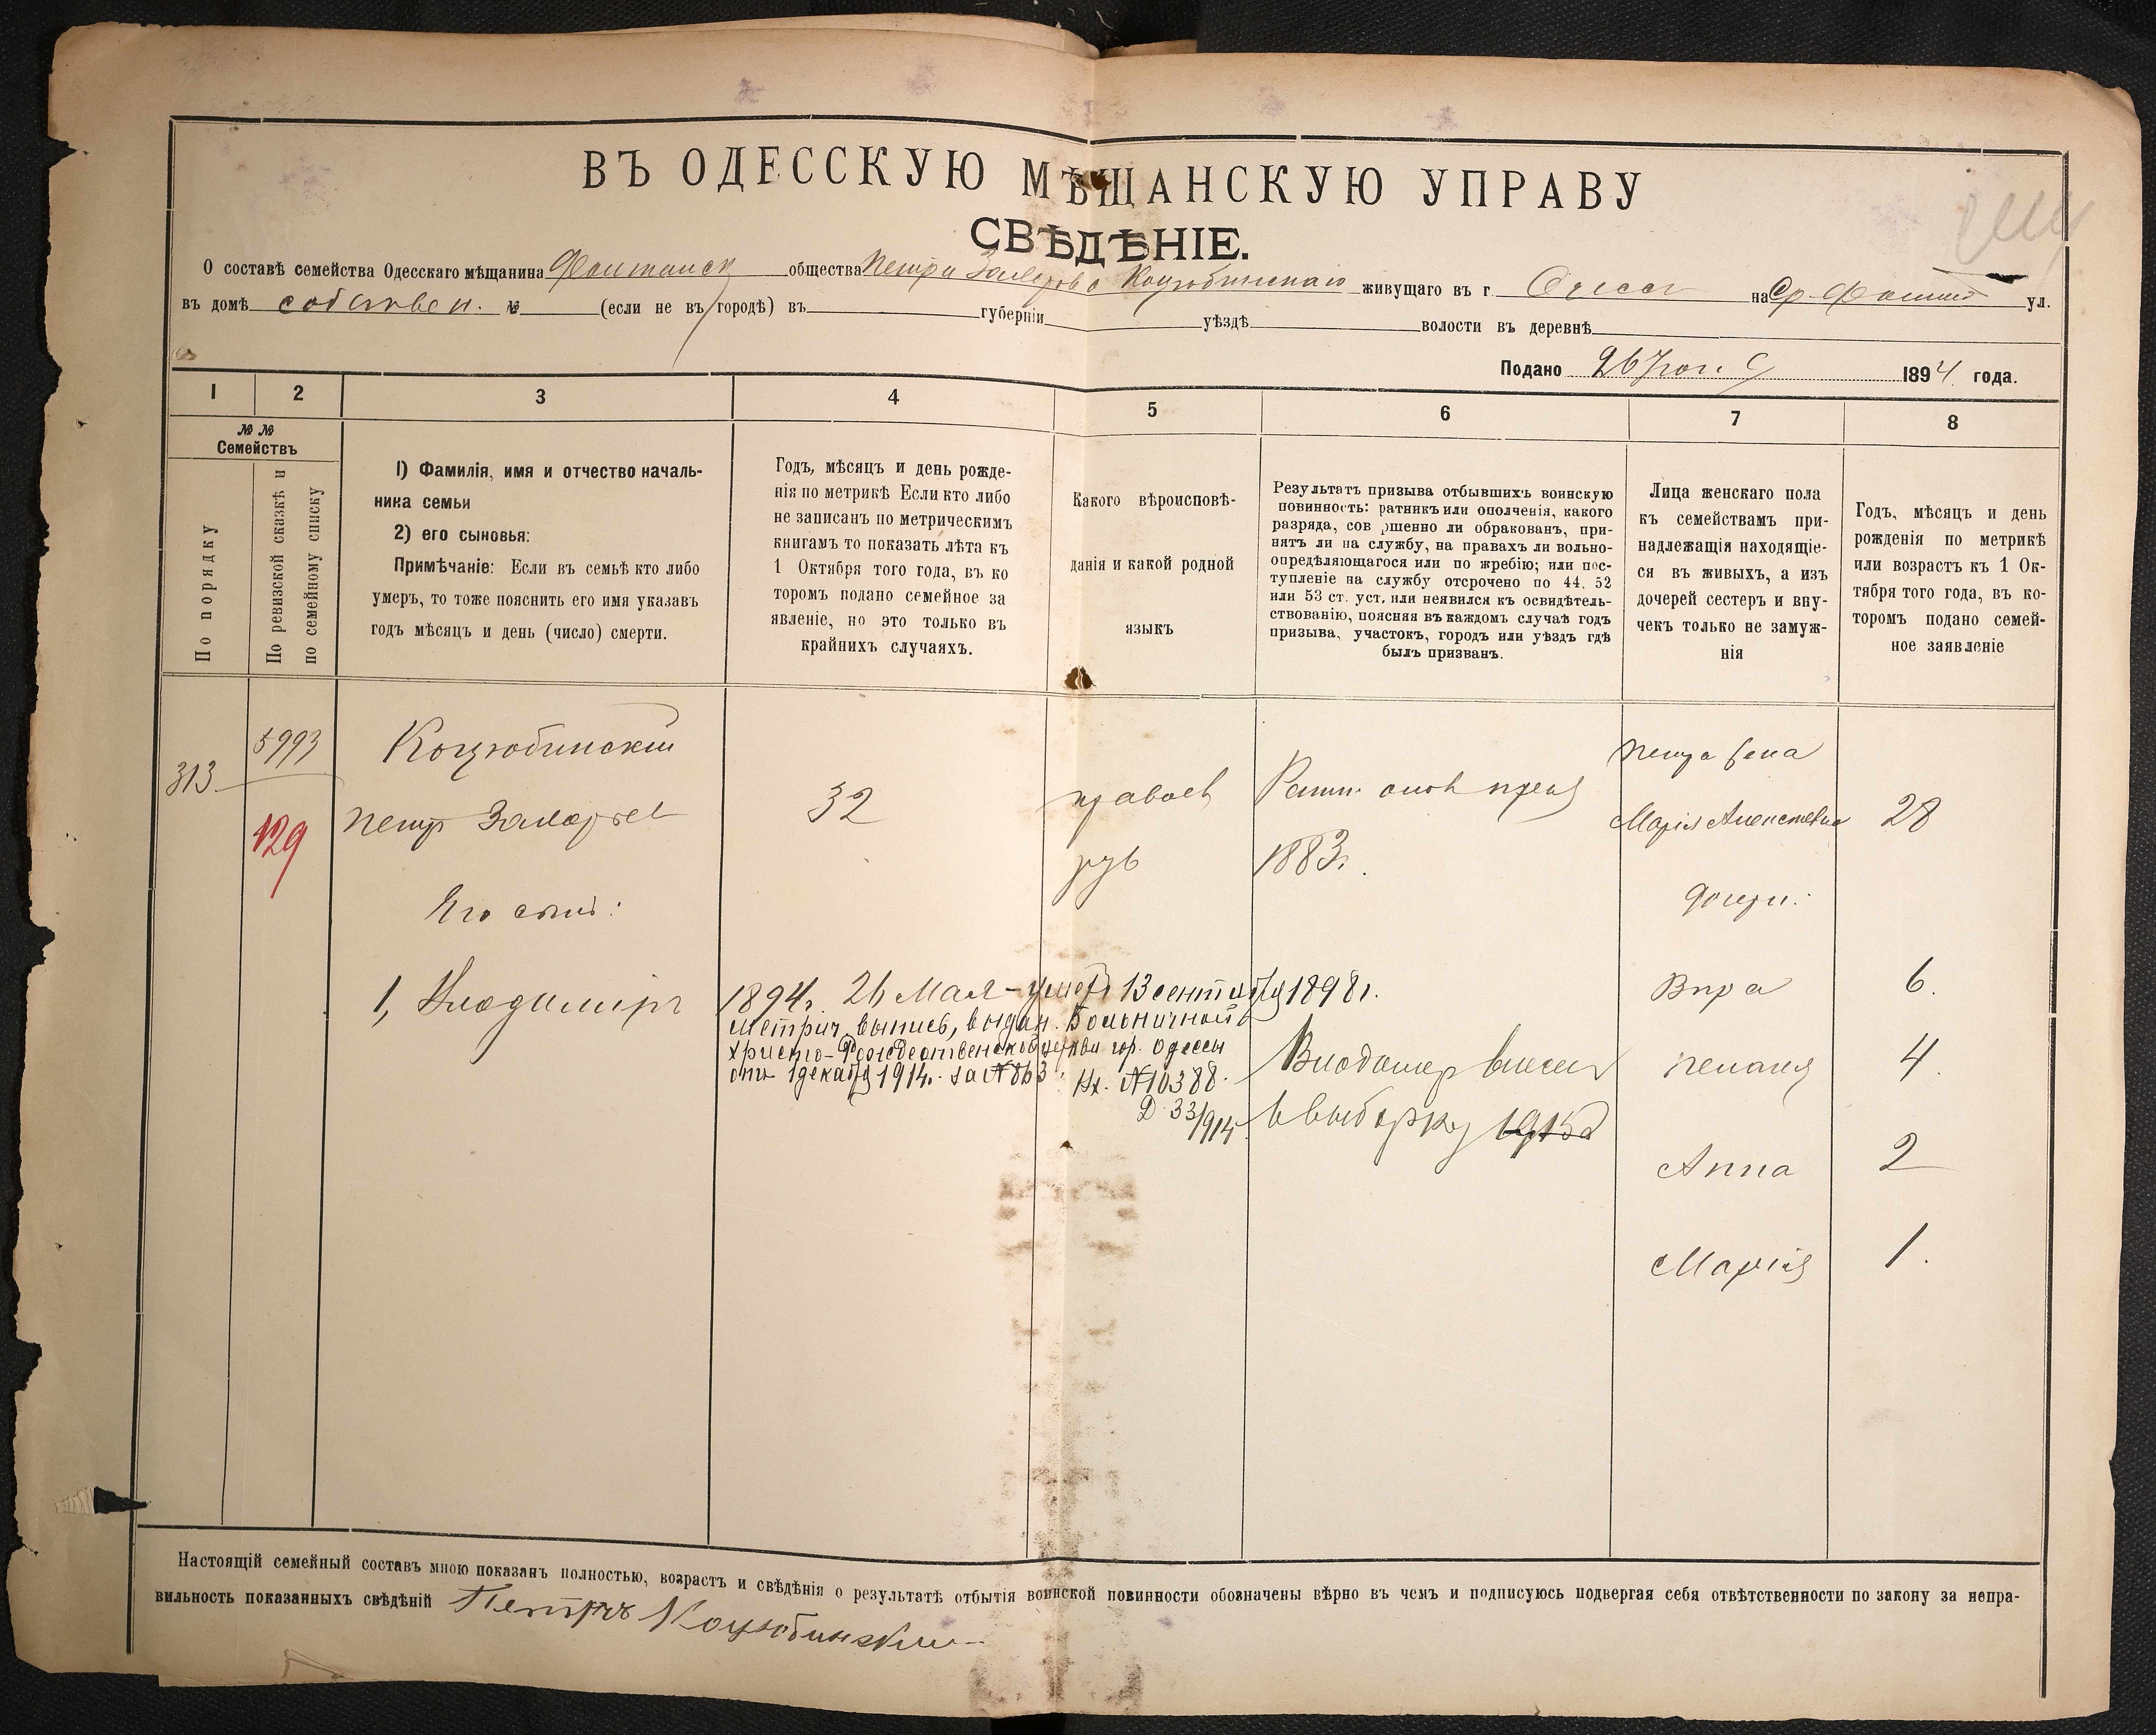 ВЪ ОДЕССКУЮ МѢЩАНСКУЮ УПРАВУ
СВѢДѢНІЕ.
О составѣ семейства Одесскаго мѣщанина Фонтанск общества Петра Коцюбинскаго живущаго въ г. Одессе на Ср. Фонтан ул.
въ домѣ собствен. № (если не въ городѣ) въ губерніи уѣздѣ волости въ деревнѣ
Подано 26 1894 года.
1 2 3 4 5 6 7 8
№ № Семействъ
По порядку
По ревизской сказкѣ и
по семейному списку
1) Фамилія, имя и отчество началь-
ника семьи
2) его сыновья:
Примѣчаніе: Если въ семьѣ кто либо
умеръ, то тоже пояснить его имя указавъ
годъ мѣсяцъ и день (число) смерти.
Годъ, мѣсяцъ и день рожде-
нія по метрикѣ Если кто либо
не записанъ по метрическимъ
книгамъ то показать лѣта къ
1 Октября того года, въ ко
торомъ подано семейное за
явленіе, но это только въ
крайнихъ случаяхъ.
Какого вѣроисповѣ-
данія и какой родной
языкъ
Результатъ призыва отбывшихъ воинскую
повинность: ратникъ или ополченія, какого
разряда, сов ршенно ли обракованъ, при-
нятъ ли на службу, на правахъ ли вольно-
опредѣляющагося или по жребію; или пос-
тупленіе на службу отсрочено по 44, 52
или 53 ст. уст. или неявился къ освидѣтель-
ствованію, поясняя въ каждомъ случаѣ годъ
призыва, участокъ, городъ или уѣздъ гдѣ
былъ призванъ.
Лица женскаго пола
къ семействамъ при-
надлежащія находящіе-
ся въ живыхъ, а изъ
дочерей сестеръ и вну-
чекъ только не замуж-
нія
Годъ, мѣсяцъ и день
рожденія по метрикѣ
или возрастъ къ 1 Ок-
тября того года, въ ко-
торомъ подано семей-
ное заявленіе
313
5993
129
Коцюбинскій
Петр
32
правосл
рус
1883г.
Петра жена
Марія 28
Его сынъ:
дочери:
1, Владимиръ
1894г. 26 Мая - умеръ 13 сентября 1898г.
Метрич. выпись, выдан. Больничной
Христо-Рождественской церкви гор. Одессы
отъ 1 декабря 1914г. за №863. Вх. №10388.
Д 33/914
Владимир внесен
в выборку 1915г
Вѣра 6.
Пелагея 4.
Анна 2
Марія 1.
Настоящій семейный составъ мною показанъ полностью, возрастъ и свѣдѣнія о результатѣ отбытія воинской повинности обозначены вѣрно въ чемъ и подписуюсь подвергая себя отвѣтственности по закону за непра-
вильность показанныхъ свѣдѣній Петръ Коцюбинский